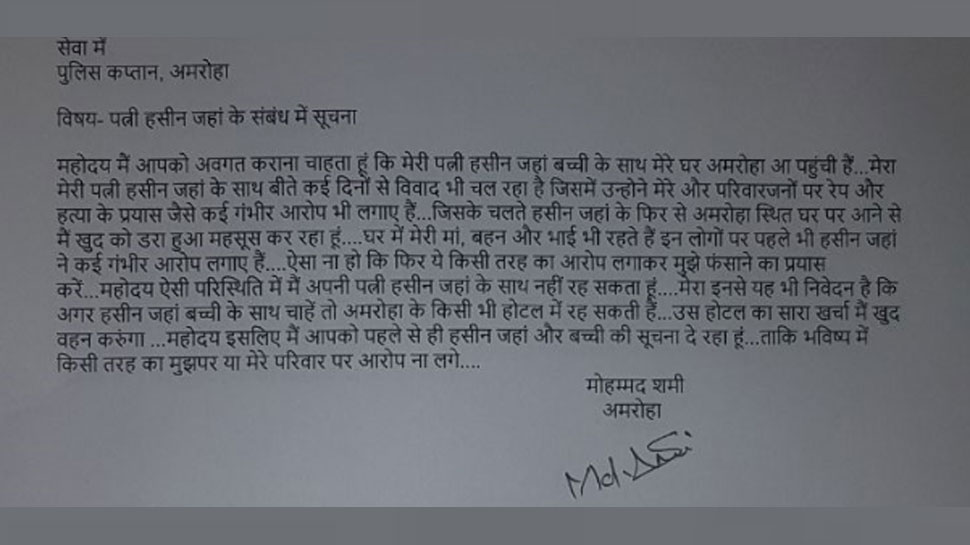 सेवा में
पुलिस कप्तान, अमरोहा
विषय- पत्नी हसीन जहां के संबंध में सूचना
महोदय मैं आपको अवगत कराना चाहता हूं कि मेरी पत्नी हसीन जहां बच्ची के साथ मेरे घर अमरोहा आ पहुंची हैं...मेरा
मेरी पत्नी हसीन जहां के साथ बीते कई दिनों से विवाद भी चल रहा है जिसमें उन्होने मेरे और परिवारजनों पर रेप और
हत्या के प्रयास जैसे कई गंभीर आरोप भी लगाए हैं...जिसके चलते हसीन जहां के फिर से अमरोहा स्थित घर पर आने से
मैं खुद को डरा हुआ महसूस कर रहा हूं....घर में मेरी मां, बहन और भाई भी रहते हैं इन लोगों पर पहले भी हसीन जहां
ने कई गंभीर आरोप लगाए हैं....ऐसा ना हो कि फिर ये किसी तरह का आरोप लगाकर मुझे फंसाने का प्रयास
करें...महोदय ऐसी परिस्थिति में मैं अपनी पत्नी हसीन जहां के साथ नहीं रह सकता हूं....मेरा इनसे यह भी निवेदन है कि
अगर हसीन जहां बच्ची के साथ चाहें तो अमरोहा के किसी भी होटल में रह सकती हैं...उस होटल का सारा खर्चा मैं खुद
वहन करुंगा ...महोदय इसलिए मैं आपको पहले से ही हसीन जहां और बच्ची की सूचना दे रहा हूं...ताकि भविष्य में
किसी तरह का मुझपर या मेरे परिवार पर आरोप ना लगे....
मोहम्मद शमी
अमरोहा
Md.